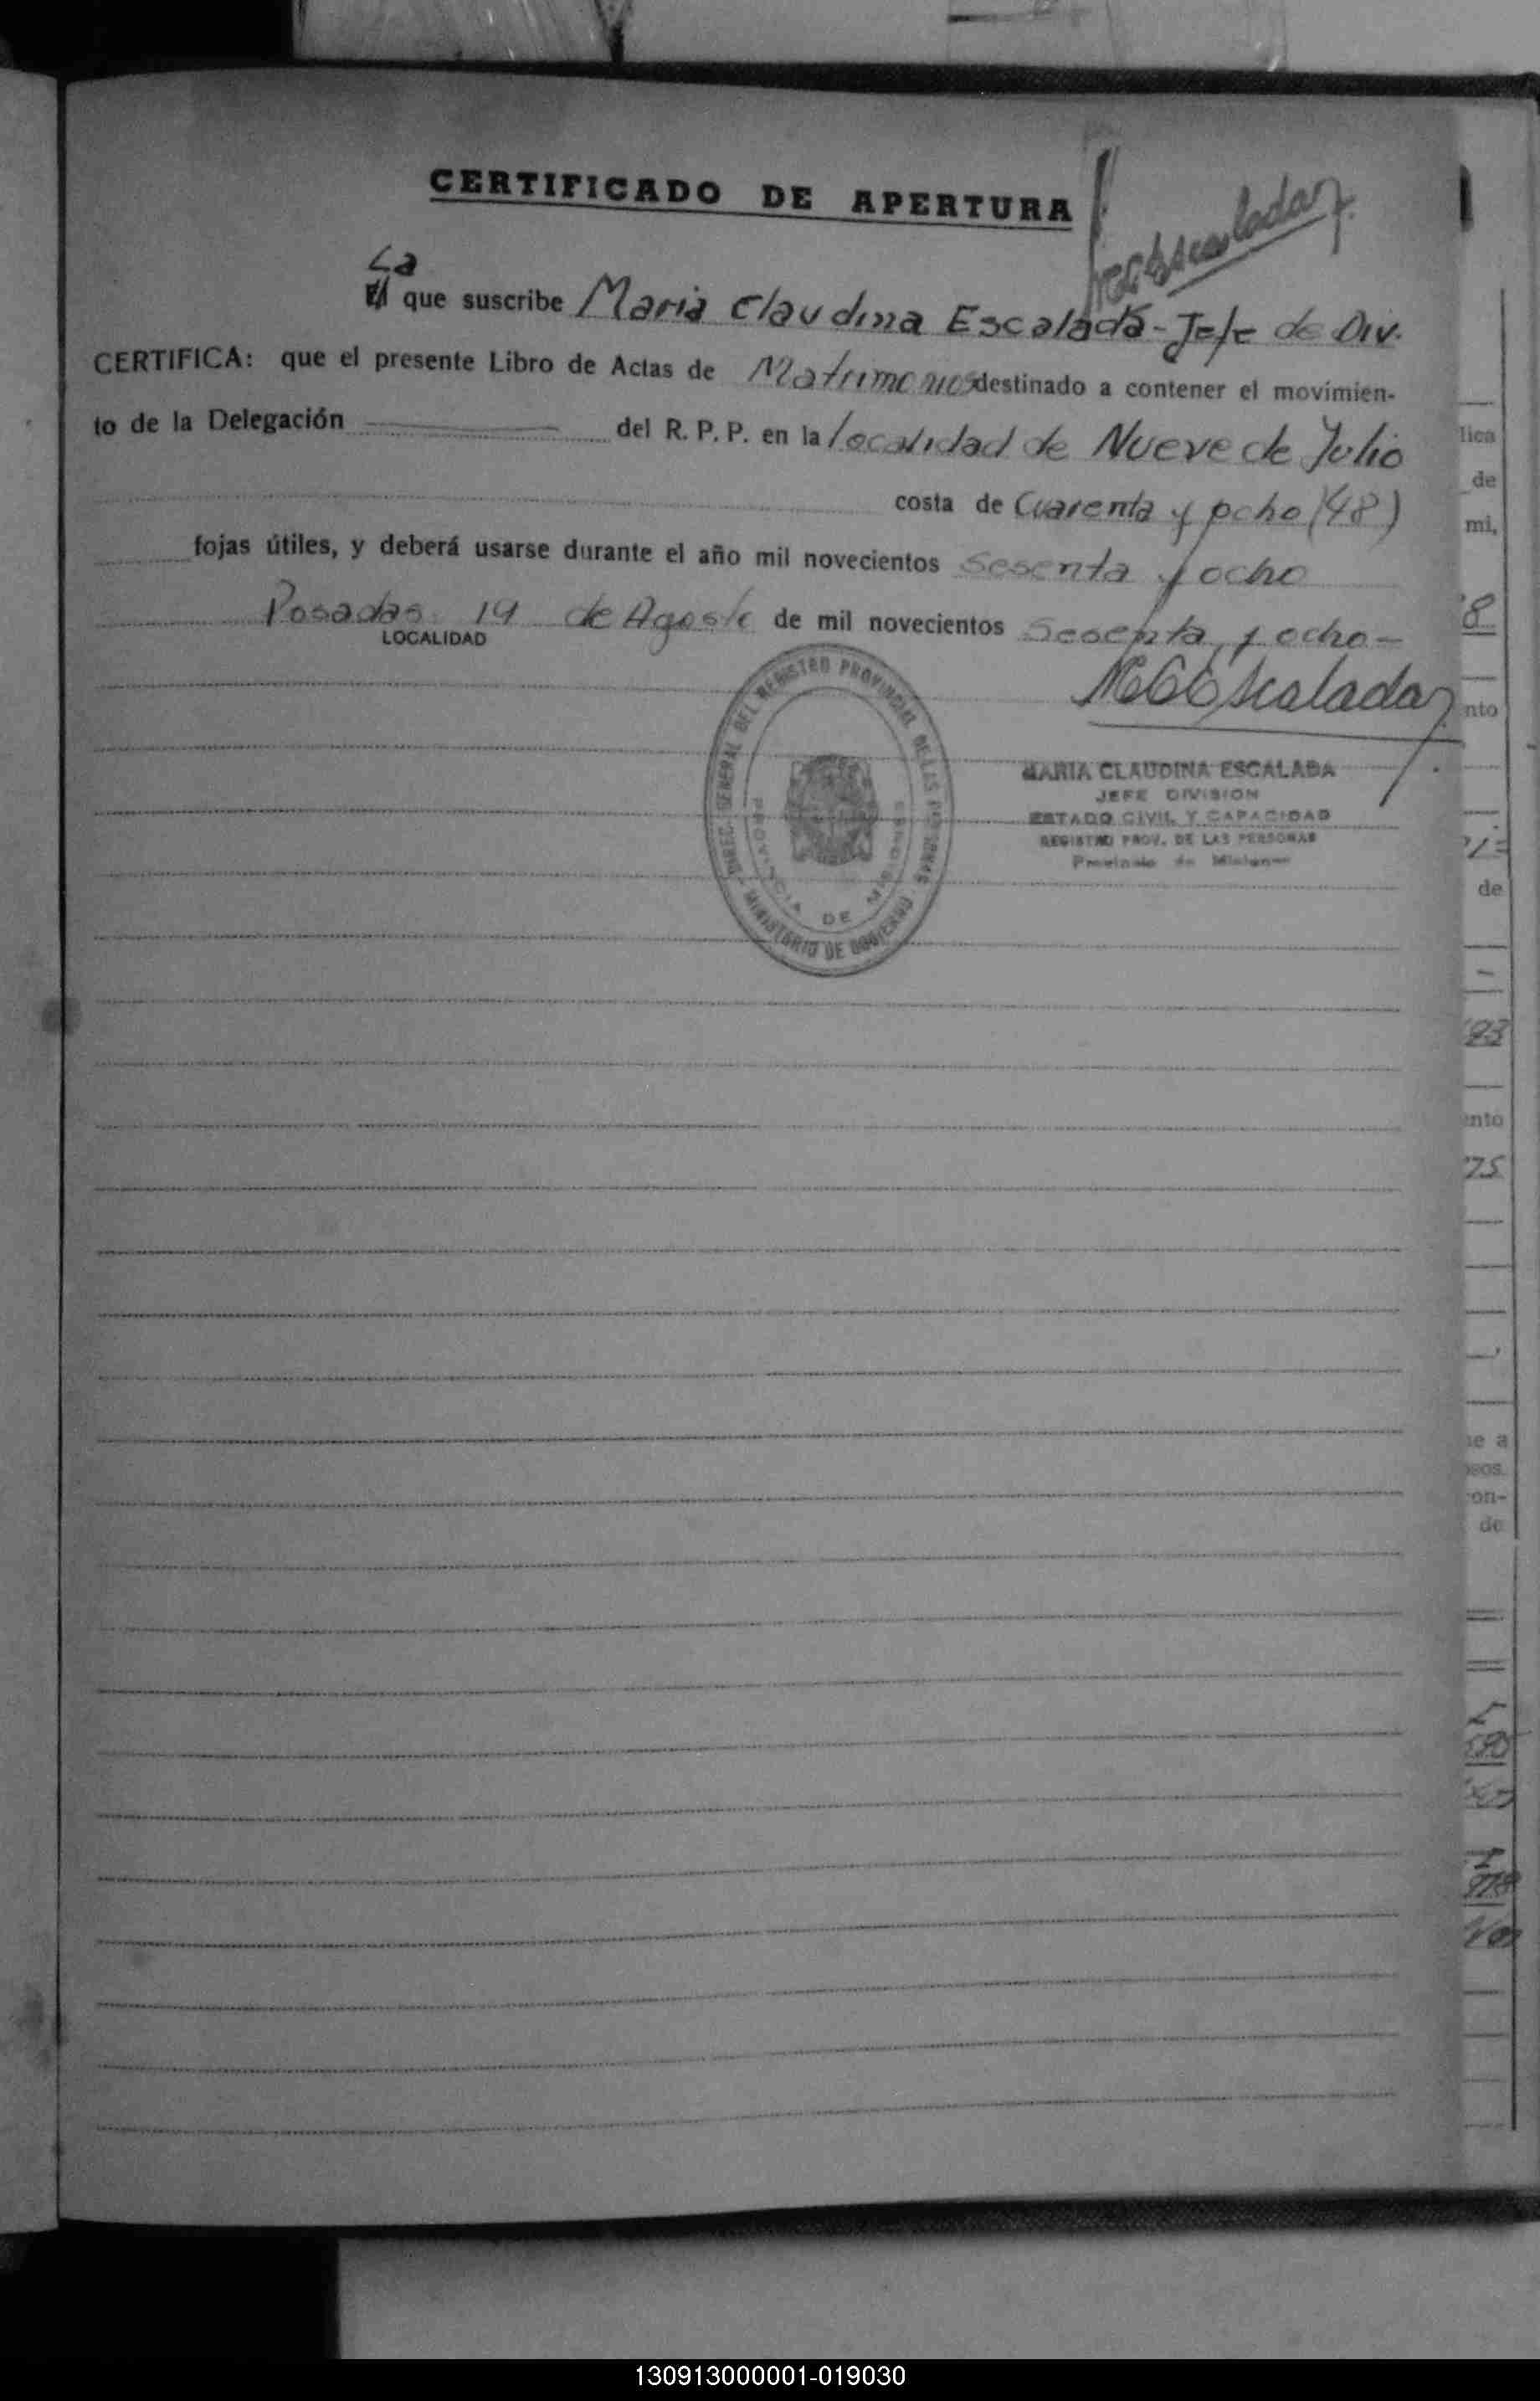 CERTIFICADO DE APERTURA
La
El que suscribe Maria Claudina Escalada - Jefe de Div.
CERTIFICA: que el presente Libro de Actas de Matrimonios destinado a contener el movimien-
to de la Delegación del R. P. P. en la localidad de Nueve de Julio
costa de Cuarenta y ocho (48)
fojas útiles, y deberá usarse durante el año mil novecientos Sesenta y ocho
Posadas 19 de Agosto de mil novecientos Sesenta y ocho -
LOCALIDAD
Escalada
DIREC. GENERAL DEL REGISTRO PROVINCIAL DE LAS PERSONAS
MINISTERIO DE GOBIERNO
PROVINCIA DE MISIONES
MARIA CLAUDINA ESCALADA
JEFE DIVISION
ESTADO CIVIL Y CAPACIDAD
REGISTRO PROV. DE LAS PERSONAS
Provincia de Misiones
lica
de
mi,
nto
de
93
nto
75
ne a
on-
de
130913000001-019030